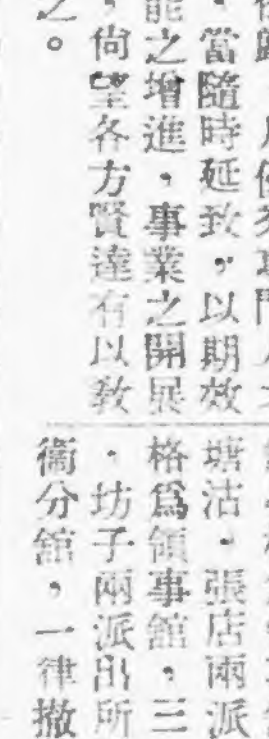 當隨時延致，以期效
能之增進，事業之開展
，尚望各方賢達有以致
之。
塘沽・張店兩派
格爲領事館，三
・坊子兩派出所
衞分館，一律撤